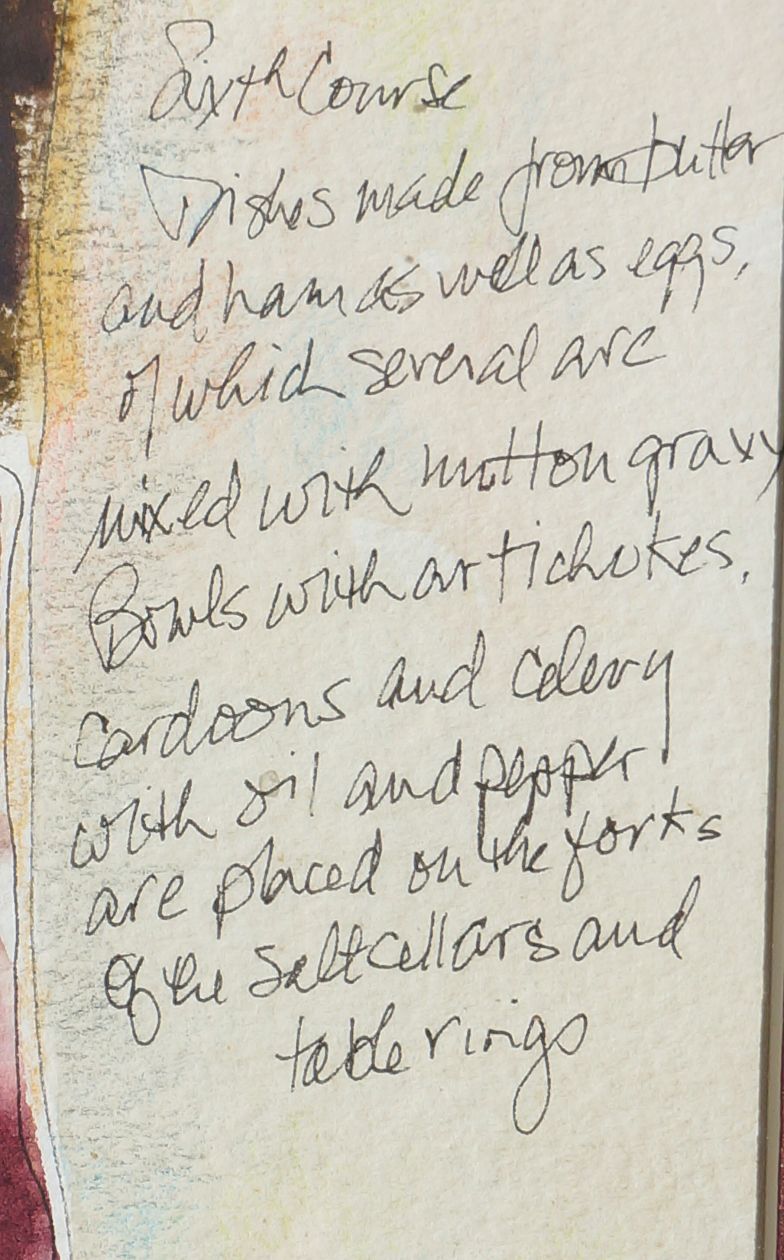 Sixth Course
Dishes made from butter
and ham as well as eggs,
of which several are
mixed with mutton gravy
Bowls with artichokes,
cardoons and celery
with oil and pepper
are placed on the forks
of the Saltcellars and
table rings